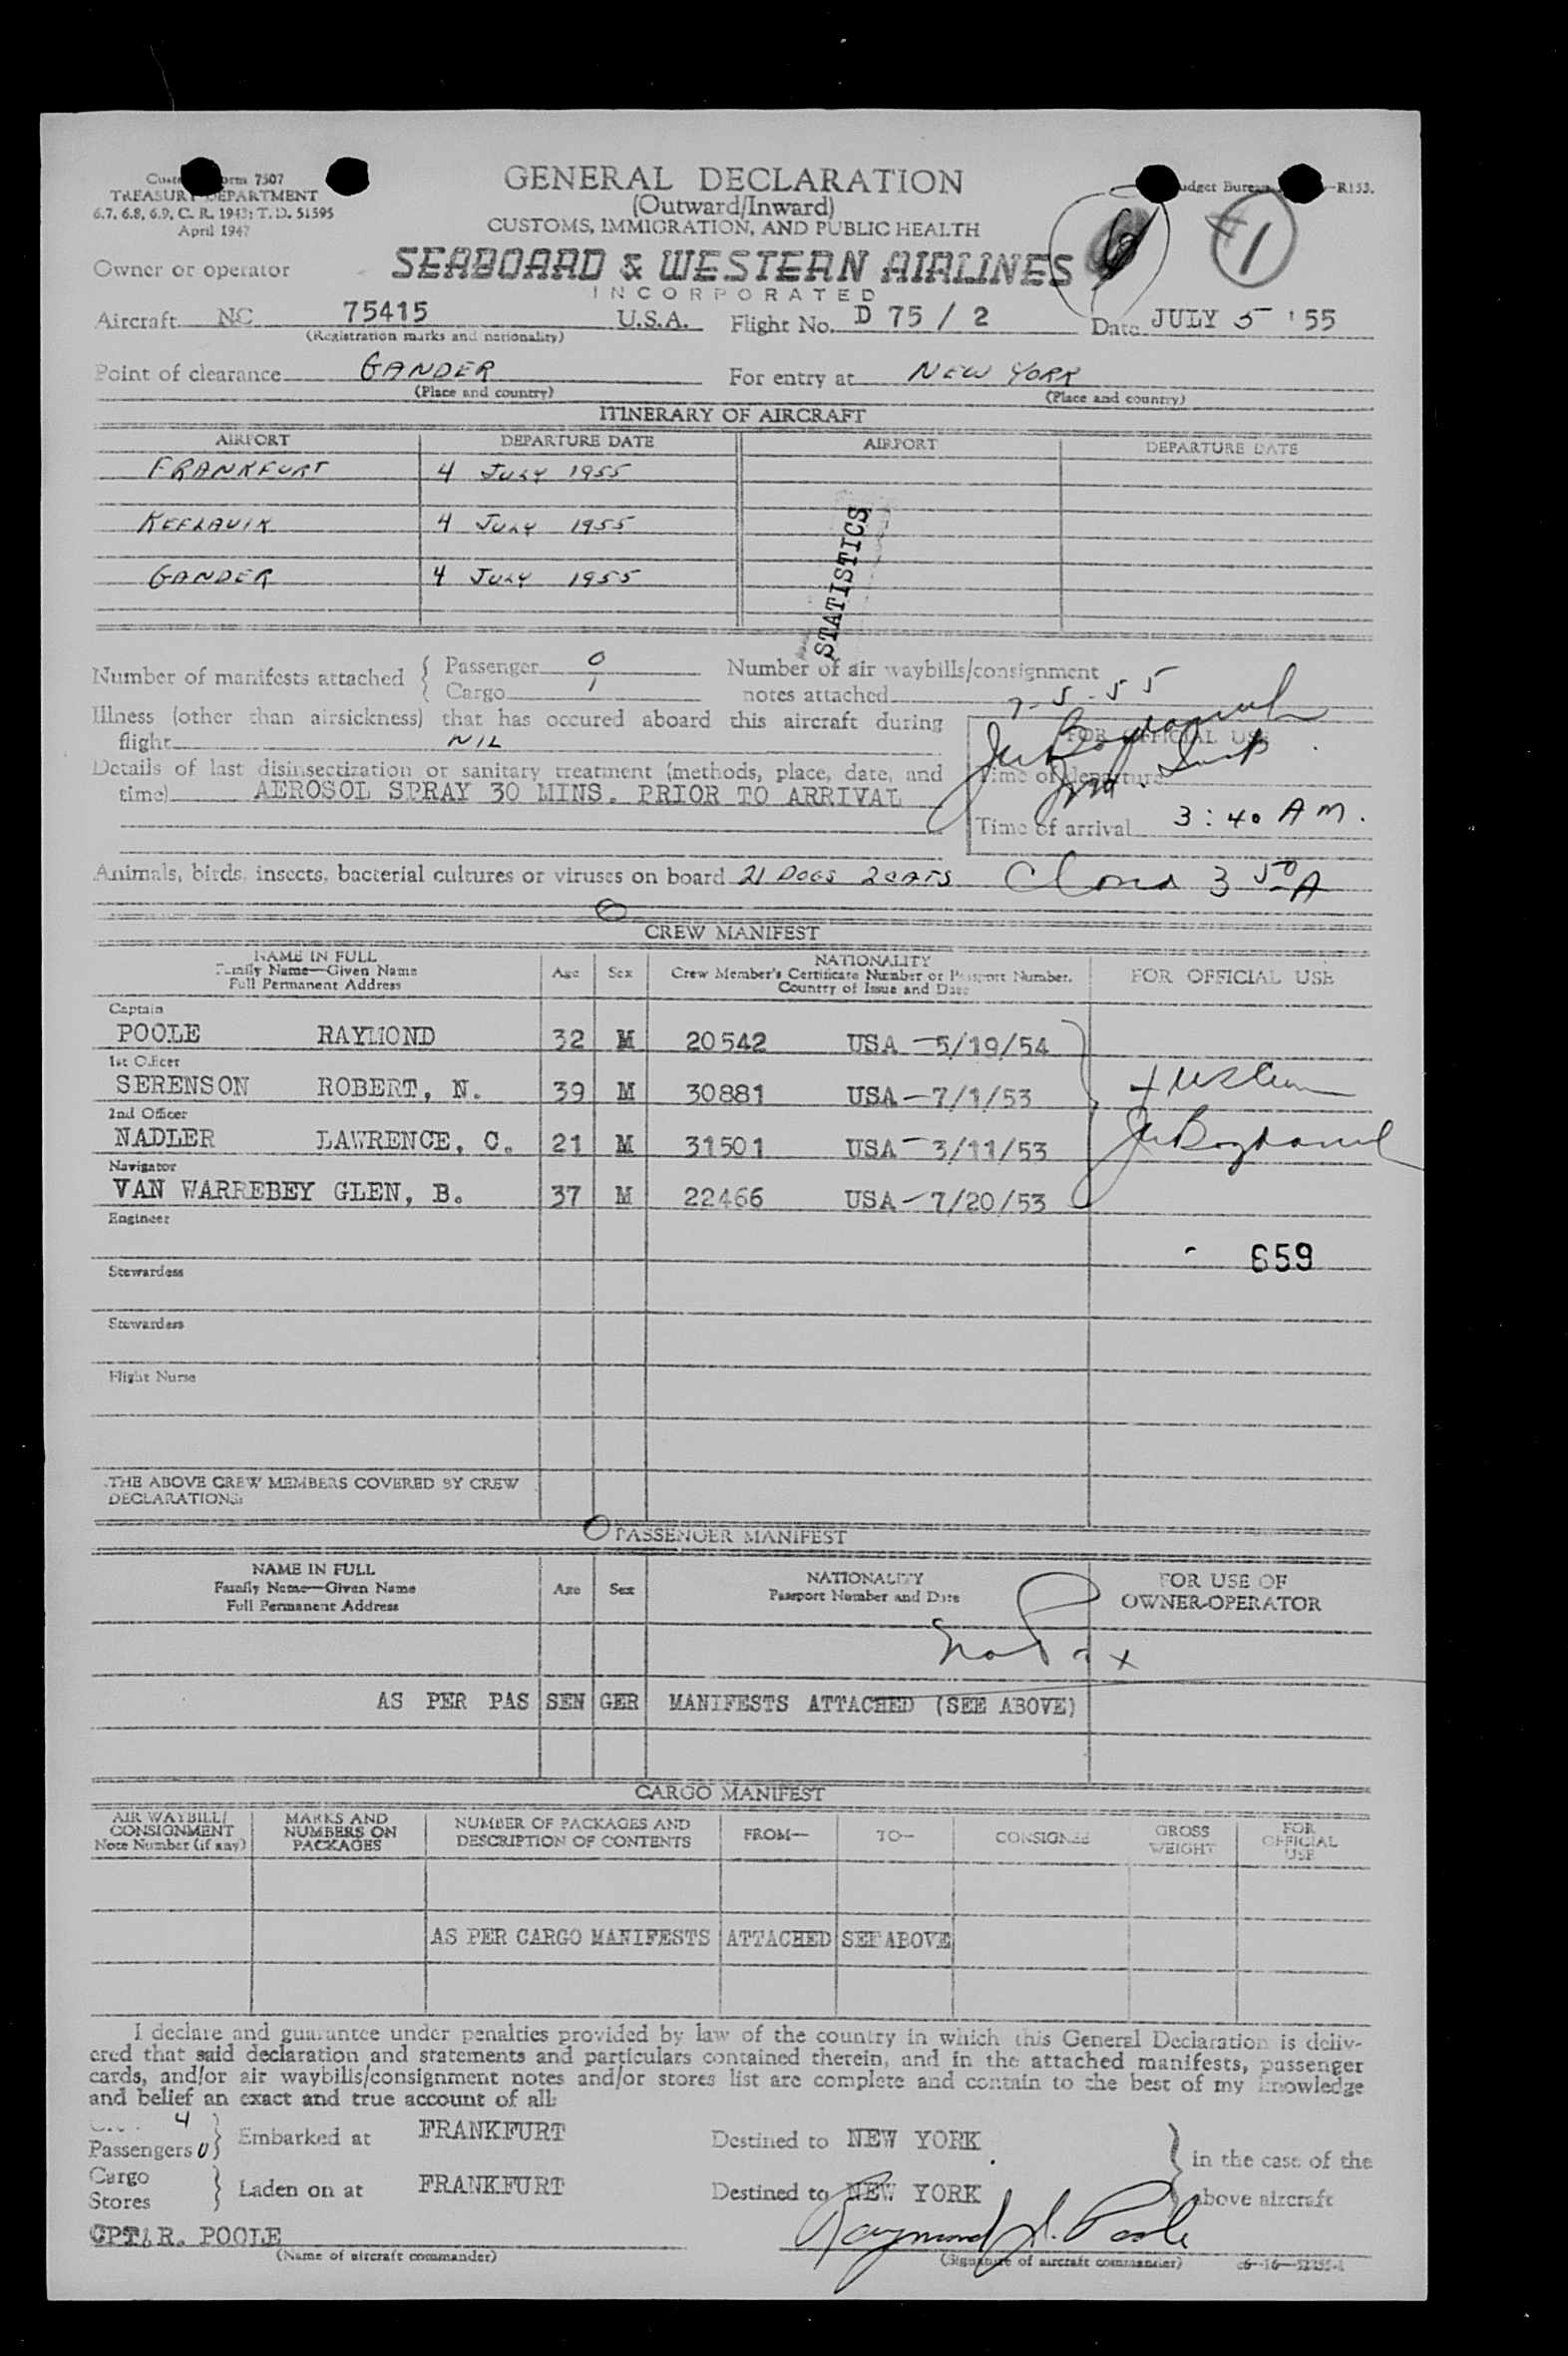 GENERAL DECLARATION
(Outward/Inward)
CUSTOMS, IMMIGRATION, AND PUBLIC HEALTH
7507
TREASURY DEPARTMENT
6.7, 6.8, 6.9, C. R. 1943; T. D. 51595
April 1947
-R153.
#1
Owner or operator SEABOARD & WESTERN AIRLINES
INCORPORATED
Aircraft NC 75415 U.S.A. Flight No. D 75 / 2 Date JULY 5 '55
(Registration marks and nationality)
Point of clearance GANDER For entry at NEW YORK
(Place and country) (Place and country)
ITINERARY OF AIRCRAFT
AIRPORT DEPARTURE DATE AIRPORT DEPARTURE DATE
FRANKFURT 4 JULY 1955
KEFLAVIK 4 JULY 1955
GANDER 4 JULY 1955
STATISTICS
Number of manifests attached { Passenger 0 Number of air waybills/consignment
Cargo 1 notes attached
7-5-55
Illness (other than airsickness) that has occured aboard this aircraft during
flight NIL
FOR OFFICIAL USE
Details of last disinsectization or sanitary treatment (methods, place, date, and
time) AEROSOL SPRAY 30 MINS. PRIOR TO ARRIVAL
Time of departure
Time of arrival 3:40 AM.
Animals, birds, insects, bacterial cultures or viruses on board 21 DOGS 2 CATS
3 50 A
CREW MANIFEST
NAME IN FULL
Family Name—Given Name
Full Permanent Address
Age Sex
NATIONALITY
Crew Member's Certificate Number or Passport Number.
Country of Issue and Date
FOR OFFICIAL USE
Captain
POOLE RAYMOND 32 M 20542 USA -5/19/54
1st Officer
SERENSON ROBERT, N. 39 M 30881 USA -7/1/53
2nd Officer
NADLER LAWRENCE, C. 21 M 31501 USA -3/11/53
Navigator
VAN WARREBEY GLEN, B. 37 M 22466 USA -7/20/53
Engineer
659
Stewardess
Stewardess
Flight Nurse
THE ABOVE CREW MEMBERS COVERED BY CREW
DECLARATIONS:
PASSENGER MANIFEST
NAME IN FULL
Family Name—Given Name
Full Permanent Address
Age Sex
NATIONALITY
Passport Number and Date
FOR USE OF
OWNER-OPERATOR
No Pax
AS PER PAS SEN GER MANIFESTS ATTACHED (SEE ABOVE)
CARGO MANIFEST
AIR WAYBILL/
CONSIGNMENT
Note Number (if any)
MARKS AND
NUMBERS ON
PACKAGES
NUMBER OF PACKAGES AND
DESCRIPTION OF CONTENTS
FROM— TO— CONSIGNEE
GROSS
WEIGHT
FOR
OFFICIAL
USE
AS PER CARGO MANIFESTS ATTACHED SEE ABOVE
I declare and guarantee under penalties provided by law of the country in which this General Declaration is deliv-
ered that said declaration and statements and particulars contained therein, and in the attached manifests, passenger
cards, and/or air waybills/consignment notes and/or stores list are complete and contain to the best of my knowledge
and belief an exact and true account of all:
4
Passengers 0 } Embarked at FRANKFURT Destined to NEW YORK
in the case of the
Cargo
Stores } Laden on at FRANKFURT Destined to NEW YORK above aircraft
CPT. R. POOLE Raymond J. Poole
(Name of aircraft commander) (Signature of aircraft commander)